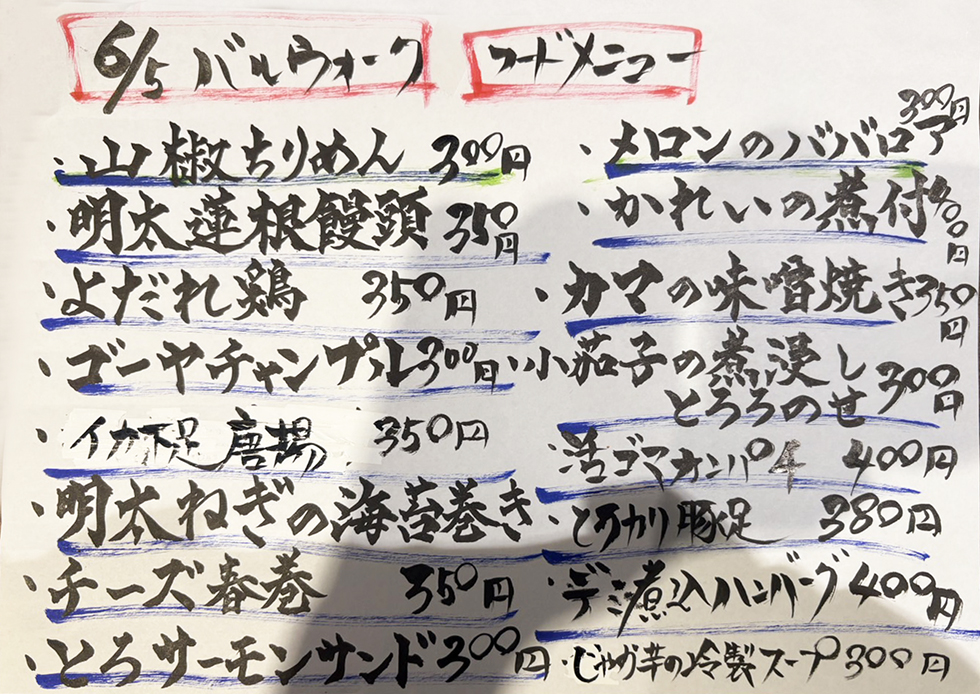 6/5 バルウォーク
フードメニュー
・山椒ちりめん 300円
・明太蓮根饅頭 350円
・よだれ鶏 350円
・ゴーヤチャンプル 300円
・イカ下足唐揚 350円
・明太ねぎの海苔巻き
・チーズ春巻 350円
・とろサーモンサンド 300円
・メロンのババロア 300円
・かれいの煮付 400円
・カマの味噌焼き 350円
・小茄子の煮浸し
とろろのせ 300円
・活ゴマカンパチ 400円
・とろカリ豚足 380円
・デミ煮込ハンバーグ 400円
・じゃが芋の冷製スープ 300円